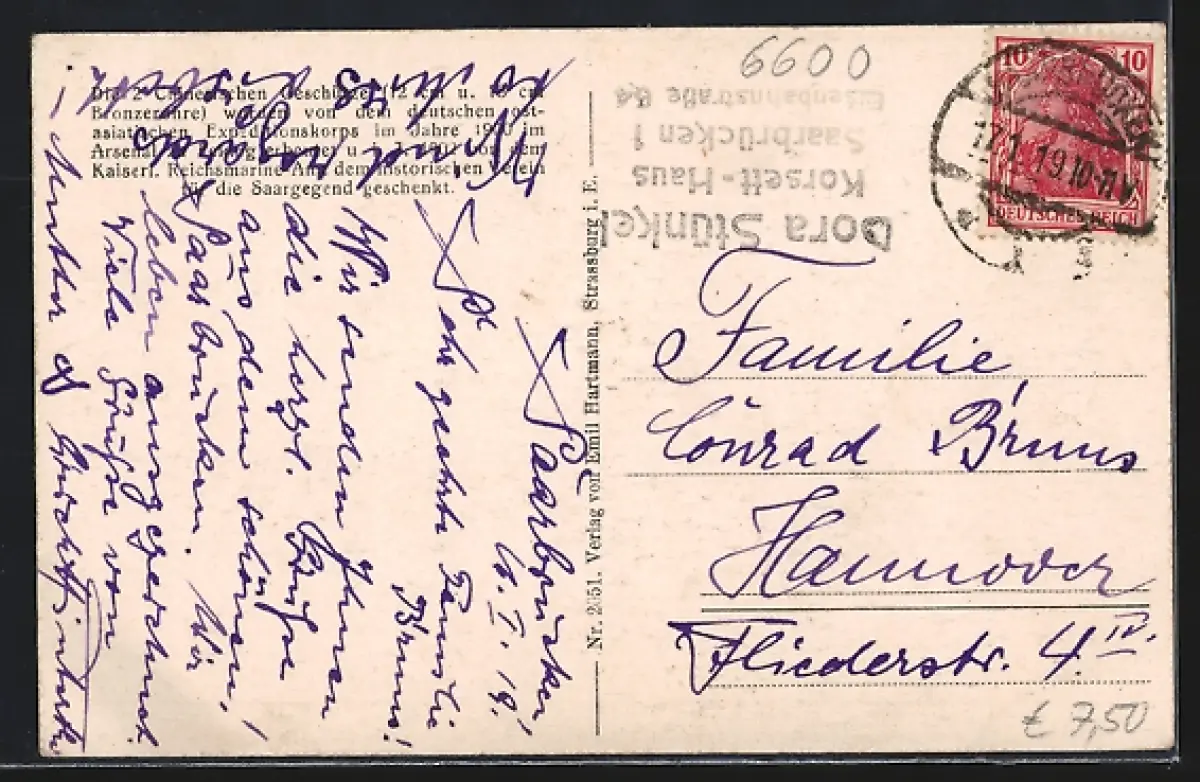 6600
Dora Stünkel
Korsett-Haus
Saarbrücken 1
Eisenbahnstraße 64
10 10
DEUTSCHES REICH
17.1.19.10-11V.
Die 2 Chinesischen Geschütze (12 cm u. cm
Bronzerohre) wurden von dem deutschen ost-
asiatischen Expeditionskorps im Jahre 1900 im
Arsenal von erbeutet u. 1901 von dem
Kaiserl. Reichsmarine Amt dem historischen Verein
für die Saargegend geschenkt.
Saarbrücken,
16. I. 19.
Sehr geehrte Familie
Bruns!
Wir senden Ihnen
die herzl. Grüße
aus dem schönen
Saarbrücken. Wir
leben ausgezeichnet
Viele Grüße von
Nr. 2051. Verlag von Emil Hartmann, Strassburg i. E.
Familie
Conrad Bruns
Hannover
Fliederstr. 4 IV.
€ 7,50